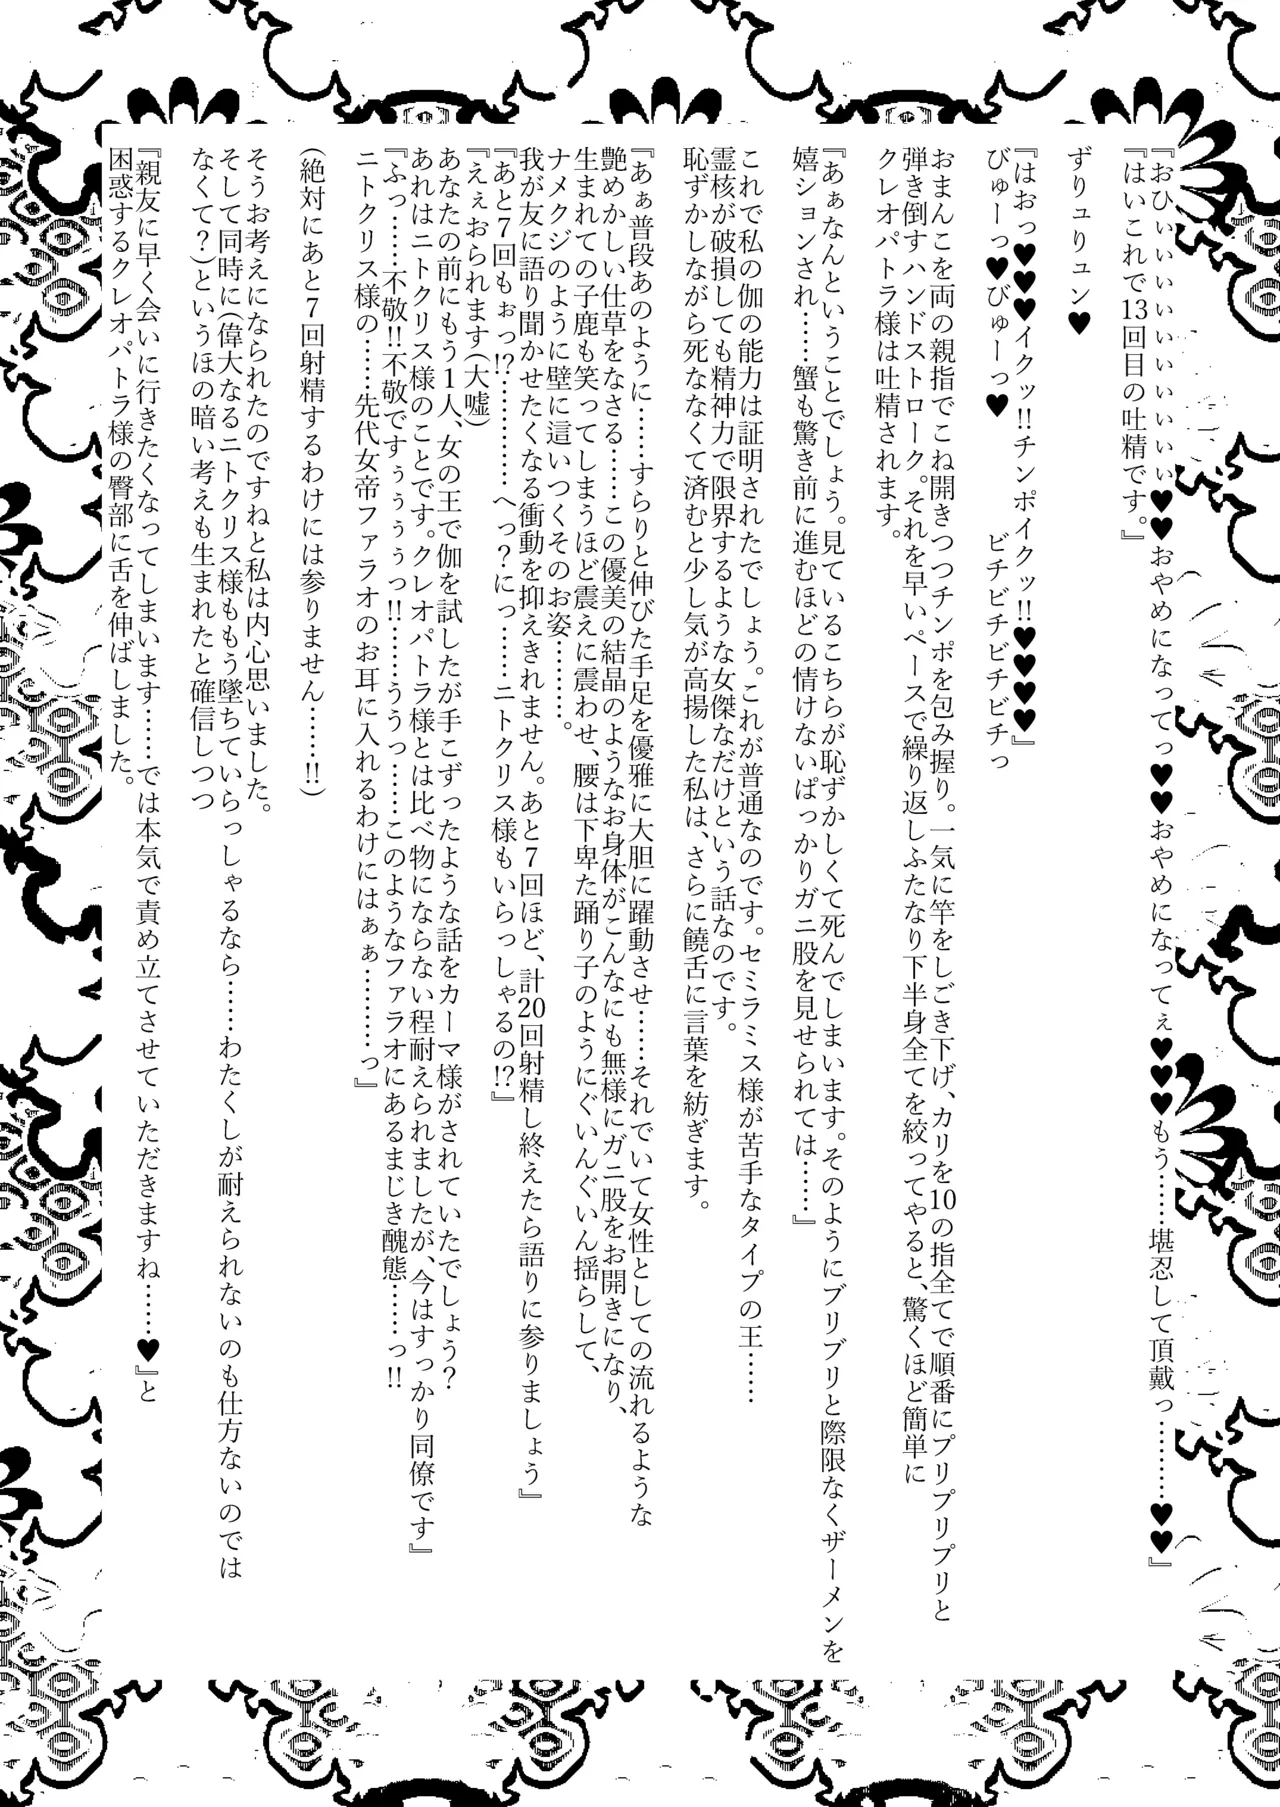 『おひぃぃぃぃぃぃぃぃぃ♥♥おやめになってっ♥♥おやめになってぇ♥♥♥もう……堪忍して頂戴っ………♥♥』
『はいこれで13回目の吐精です。』
ずりュりュン♥
『はおっ♥♥♥イクッ!!チンポイクッ!!♥♥♥♥』
びゅーっ♥びゅーっ♥　　　ビチビチビチビチっ
おまんこを両の親指でこね開きつつチンポを包み握り。一気に竿をしごき下げ、カリを10の指全てで順番にプリプリプリと
弾き倒すハンドストローク。それを早いペースで繰り返しふたなり下半身全てを絞ってやると、驚くほど簡単に
クレオパトラ様は吐精されます。
『あぁなんということでしょう。見ているこちらが恥ずかしくて死んでしまいます。そのようにブリブリと際限なくザーメンを
嬉ションされ……蟹も驚き前に進むほどの情けないぱっかりガニ股を見せられては……』
これで私の伽の能力は証明されたでしょう。これが普通なのです。セミラミス様が苦手なタイプの王……
霊核が破損しても精神力で限界するような女傑なだけという話なのです。
恥ずかしながら死ななくて済むと少し気が高揚した私は、さらに饒舌に言葉を紡ぎます。
『あぁ普段あのように……すらりと伸びた手足を優雅に大胆に躍動させ……それでいて女性としての流れるような
艶めかしい仕草をなさる……この優美の結晶のようなお身体がこんなにも無様にガニ股をお開きになり、
生まれての子鹿も笑ってしまうほど震えに震わせ、腰は下卑た踊り子のようにぐいんぐいん揺らして、
ナメクジのように壁に這いつくそのお姿………。
我が友に語り聞かせたくなる衝動を抑えきれません。あと7回ほど、計20回射精し終えたら語りに参りましょう』
『あと7回もぉっ!?…………へっ？にっ……ニトクリス様もいらっしゃるの!?』
『えぇおられます(大嘘)
あなたの前にもう1人、女の王で伽を試したが手こずったような話をカーマ様がされていたでしょう？
あれはニトクリス様のことです。クレオパトラ様とは比べ物にならない程耐えられましたが、今はすっかり同僚です』
『ふっ……不敬!!不敬ですぅぅぅぅっ!!……ううっ……このようなファラオにあるまじき醜態……っ!!
ニトクリス様の……先代女帝ファラオのお耳に入れるわけにはぁぁ………っ』
(絶対にあと7回射精するわけには参りません……!!)
そうお考えになられたのですねと私は内心思いました。
そして同時に(偉大なるニトクリス様ももう墜ちていらっしゃるなら……わたくしが耐えられないのも仕方ないのでは
なくて？)というほの暗い考えも生まれたと確信しつつ
『親友に早く会いに行きたくなってしまいます……では本気で責め立てさせていただきますね……♥』と
困惑するクレオパトラ様の臀部に舌を伸ばしました。